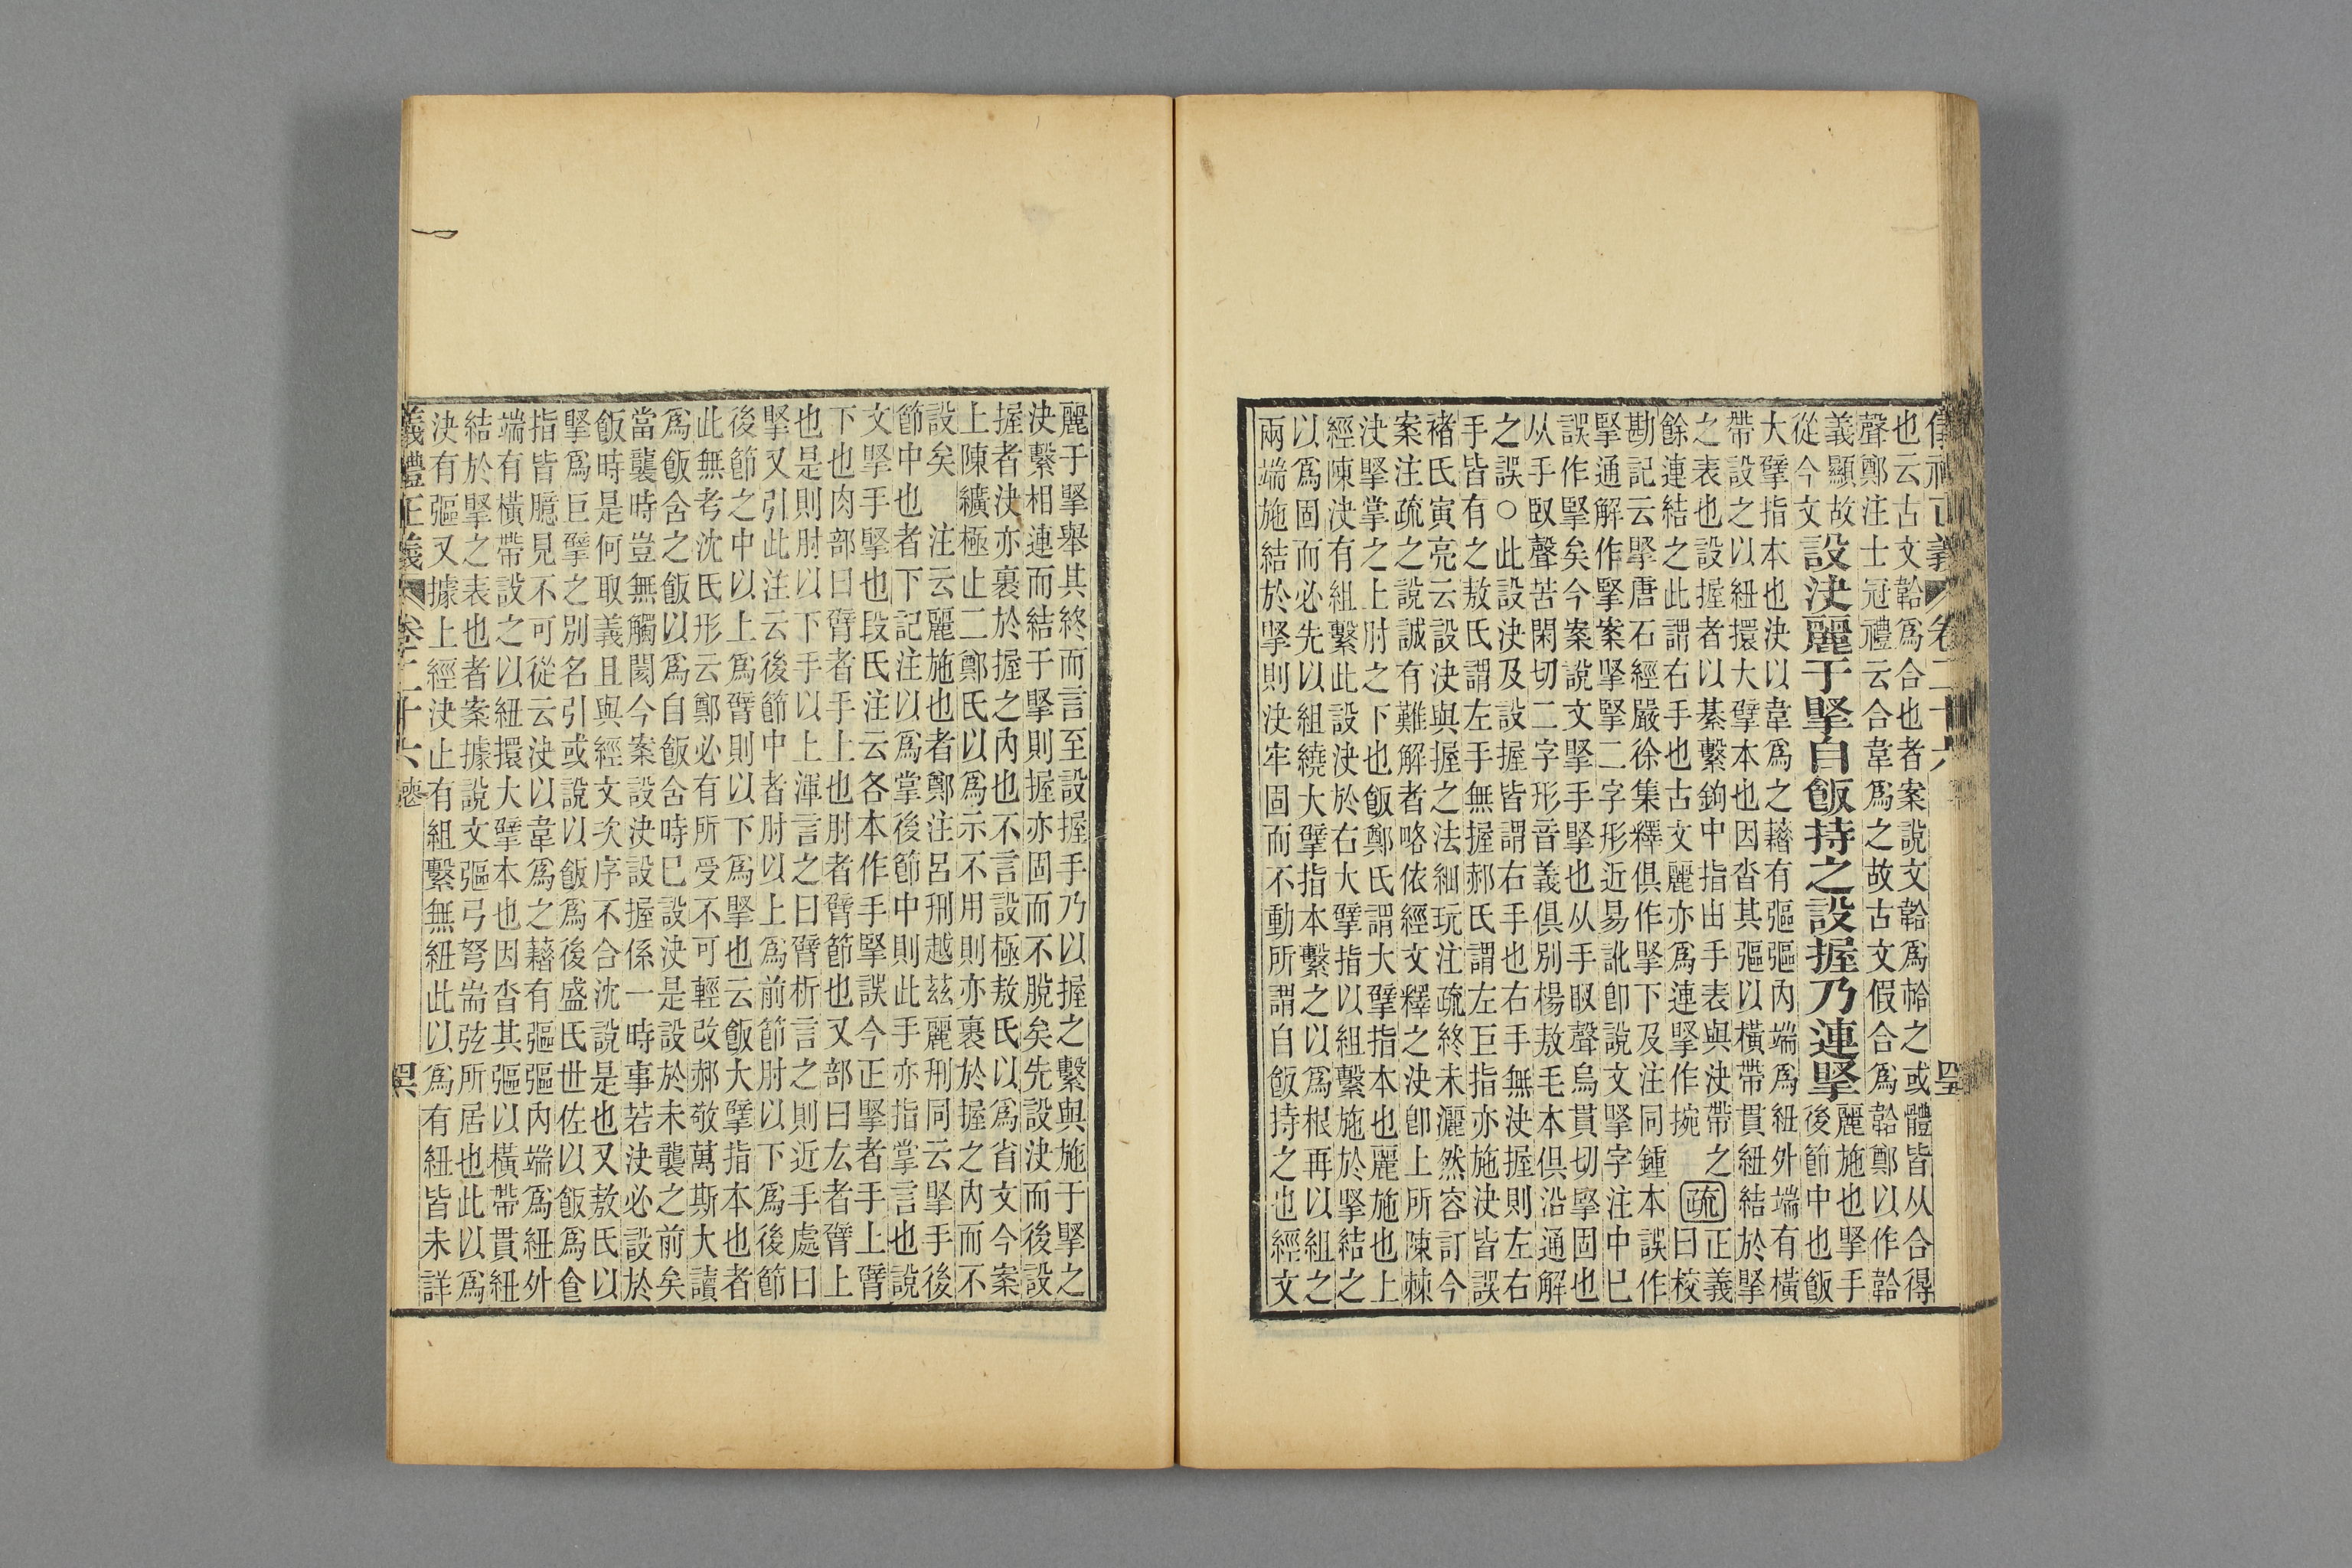 儀禮正義 卷二十六
也云古文韐爲合也者案說文韐爲帢之或體皆从合得
聲鄭注士冠禮云合韋爲之故古文假合爲韐鄭以作韐
義顯故
從今文
設決麗于掔自飯持之設握乃連掔
麗施也掔手
後節中也飯
大擘指本也決以韋爲之藉有彄彄內端爲紐外端有橫
帶設之以紐擐大擘本也因沓其彄以橫帶貫紐結於掔
之表也設握者以綦繫鉤中指由手表與決帶之
餘連結之此謂右手也古文麗亦爲連掔作捥
疏
正義
曰校
勘記云掔唐石經嚴徐集釋俱作掔下及注同鍾本誤作
掔通解作掔案掔掔二字形近易訛卽說文掔字注中已
誤作掔矣今案說文掔手掔也从手臤聲烏貫切掔固也
从手臤聲苦閑切二字形音義俱別楊敖毛本俱沿通解
之誤○此設決及設握皆謂右手也右手無決握則左右
手皆有之敖氏謂左手無握郝氏謂左巨指亦施決皆誤
褚氏寅亮云設決與握之法細玩注疏終未灑然容訂今
案注疏之說誠有難解者略依經文釋之決卽上所陳棘
決掔掌之上肘之下也飯鄭氏謂大擘指本也麗施也上
經陳決有組繫此設決於右大擘指以組繫施於掔結之
以爲固而必先以組繞大擘指本繫之以爲根再以組之
兩端施結於掔則決牢固而不動所謂自飯持之也經文
麗于掔舉其終而言至設握手乃以握之繫與施于掔之
決繫相連而結于掔則握亦固而不脫矣先設決而後設
握者決亦裹於握之內也不言設極敖氏以爲省文今案
上陳纊極止二鄭氏以爲示不用則亦裹於握之內而不
設矣 注云麗施也者鄭注呂刑越玆麗刑同云掔手後
節中也者下記注以爲掌後節中則此手亦指掌言也說
文掔手掔也段氏注云各本作手掔誤今正掔者手上臂
下也肉部曰臂者手上也肘者臂節也又部曰厷者臂上
也是則肘以下手以上渾言之曰臂析言之則近手處曰
掔又引此注云後節中者肘以上爲前節肘以下爲後節
後節之中以上爲臂則以下爲掔也云飯大擘指本也者
此無考沈氏彤云鄭必有所受不可輕改郝敬萬斯大讀
爲飯含之飯以爲自飯含時已設決是設於未襲之前矣
當襲時豈無觸閡今案設決設握係一時事若決必設於
飯時是何取義且與經文次序不合沈說是也又敖氏以
掔爲巨擘之別名引或說以飯爲後盛氏世佐以飯爲㑹
指皆臆見不可從云決以韋爲之藉有彄彄內端爲紐外
端有橫帶設之以紐擐大擘本也因沓其彄以橫帶貫紐
結於掔之表也者案據說文彄弓弩耑弦所居也此以爲
決有彄又據上經決止有組繫無紐此以爲有紐皆未詳
儀禮正義 卷二十六